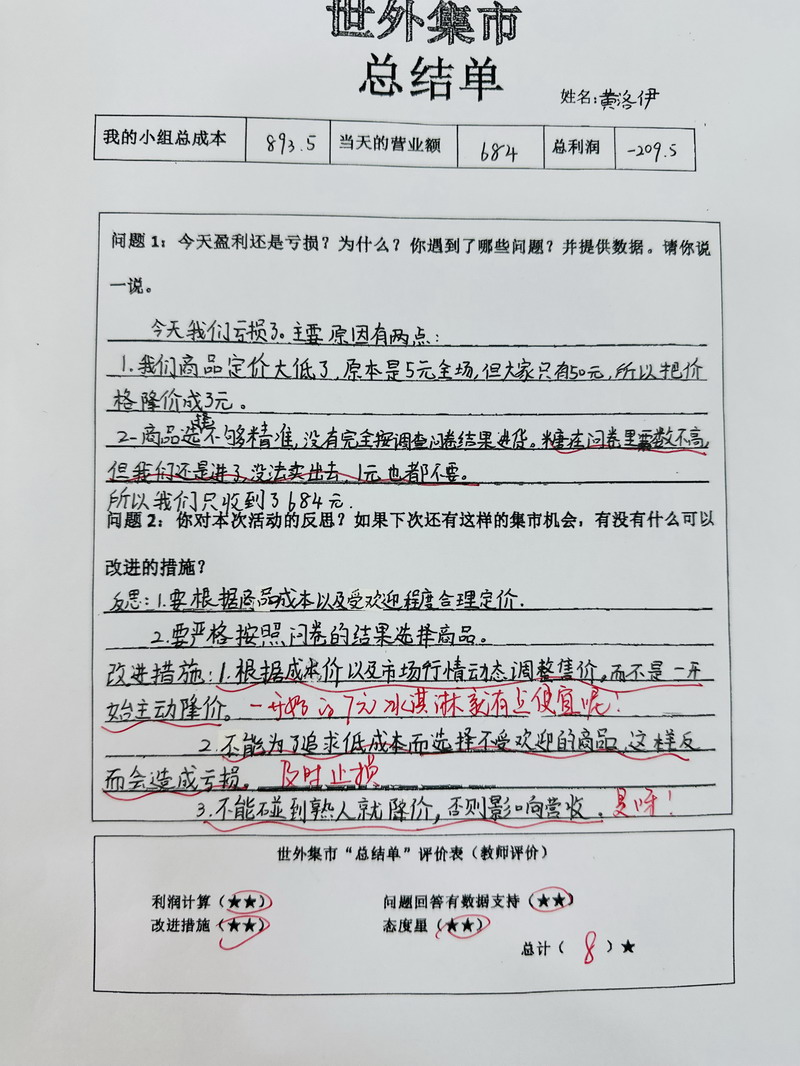 世外集市
总结单
姓名:黄洛伊
我的小组总成本 893.5 当天的营业额 684 总利润 -209.5
问题1：今天盈利还是亏损？为什么？你遇到了哪些问题？并提供数据。请你说
一说。
今天我们亏损了。主要原因有两点：
1.我们商品定价大低了，原本是5元全场，但大家只有50元，所以把价
格降价成3元。
2-商品选择不够精准，没有完全按调查问卷结果进货。糖在问卷里票数不高，
但我们还是进了，没法卖出去，1元也都不要。
所以我们只收到了684元.
问题2：你对本次活动的反思？如果下次还有这样的集市机会，有没有什么可以
改进的措施？
反思：1.要根据商品成本以及受欢迎程度合理定价.
2.要严格按照问卷的结果选择商品。
改进措施：1.根据成本价以及市场行情动态调整售价，而不是一开
始主动降价。一开始的7元冰淇淋就有点便宜呢！
2.不能为了追求低成本而选择不受欢迎的商品，这样反
而会造成亏损。及时止损
3.不能碰到熟人就降价，否则影响营收。是呀！
世外集市“总结单”评价表（教师评价）
利润计算（★★） 问题回答有数据支持（★★）
改进措施（★★） 态度星（★★）
总计（ 8 ）★